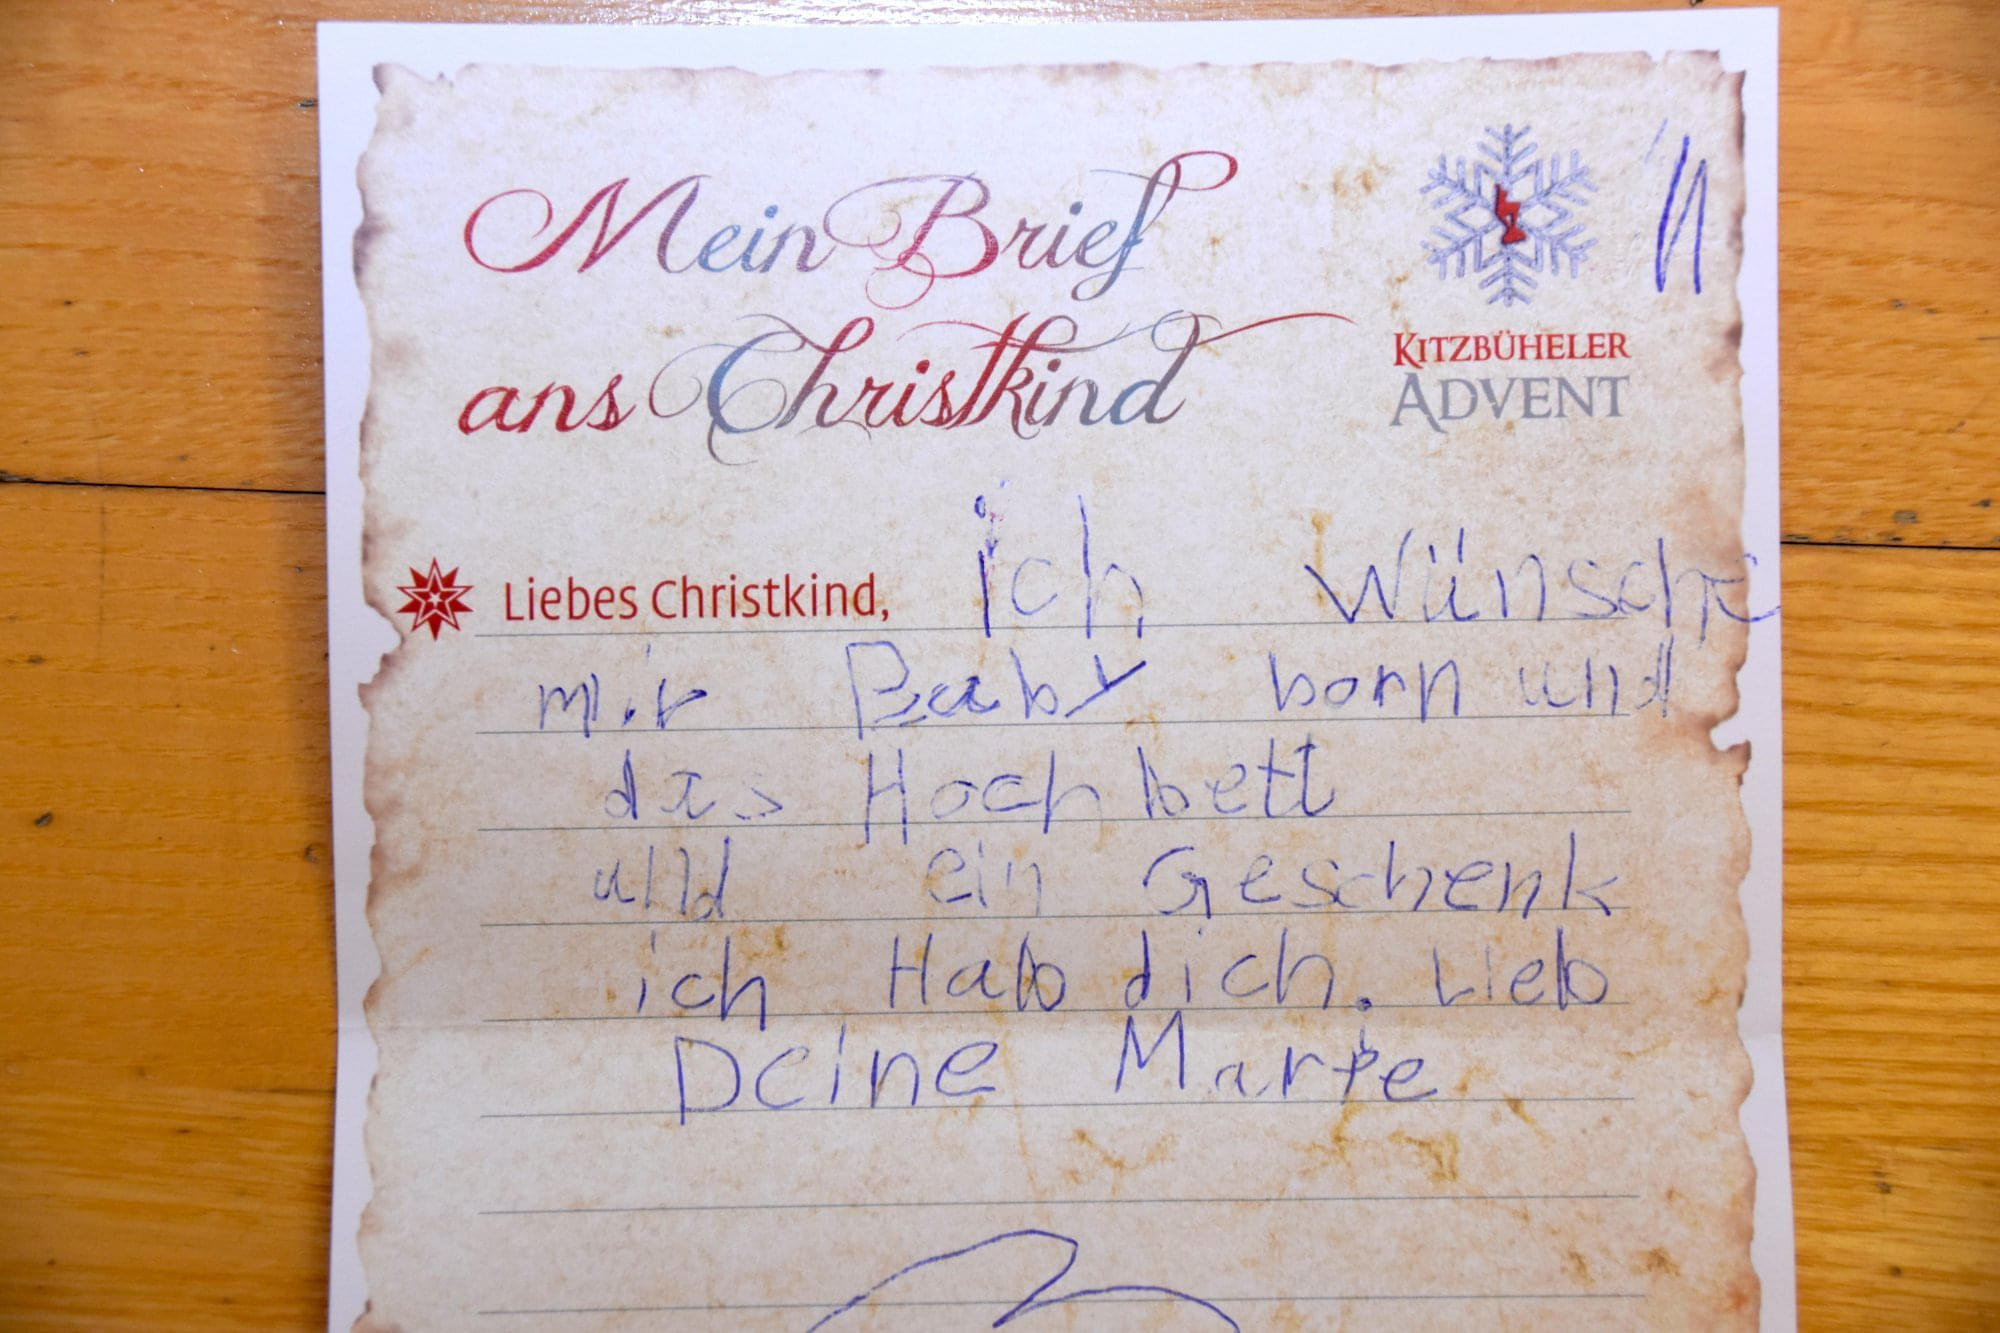 Mein Brief
ans Christkind
KITZBÜHELER
ADVENT
Liebes Christkind, ich Wünsche
mir Baby born und
das Hochbett
und ein Geschenk
ich Hab dich. Lieb
Deine Marie